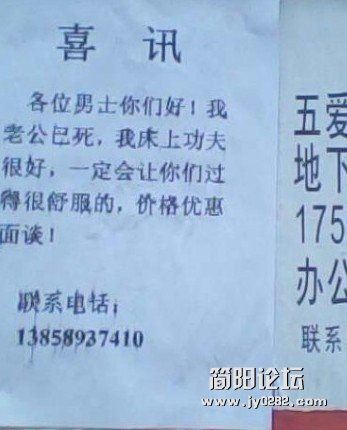 喜 讯
各位男士你们好！我
老公已死，我床上功夫
很好，一定会让你们过
得很舒服的，价格优惠
面谈！
联系电话；
13858937410
五爱
地下
175
办公
联系
简阳论坛
www.jy0282.com